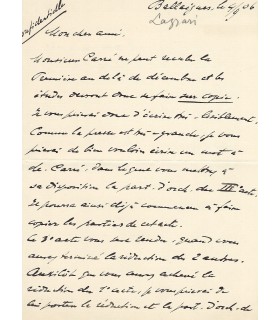 confidentielle
Ballaigues, le 4/9 06
Lazzari
Mon cher ami.
Monsieur Carré ne peut rendre la
dernière au delà de décembre et les
études devront donc se faire sur copie.
Je vous prierai donc d'écrire
Comme la presse est très-grande, je vous
prierai de bien vouloir écrire un mot à
M. Carré, dans lequel vous mettrez à
sa disposition le part. d'orch. du IIIe acte.
Je pourrai ainsi déjà commencer à faire
copier les parties de cet acte.
Le 3e acte vous sera rendu quand vous
aurez terminé la réduction des 2 autres.
Aussitôt que vous aurez achevé la
réduction du 1er acte, je vous prierai de
lui porter la réduction et la part. d'orch. de